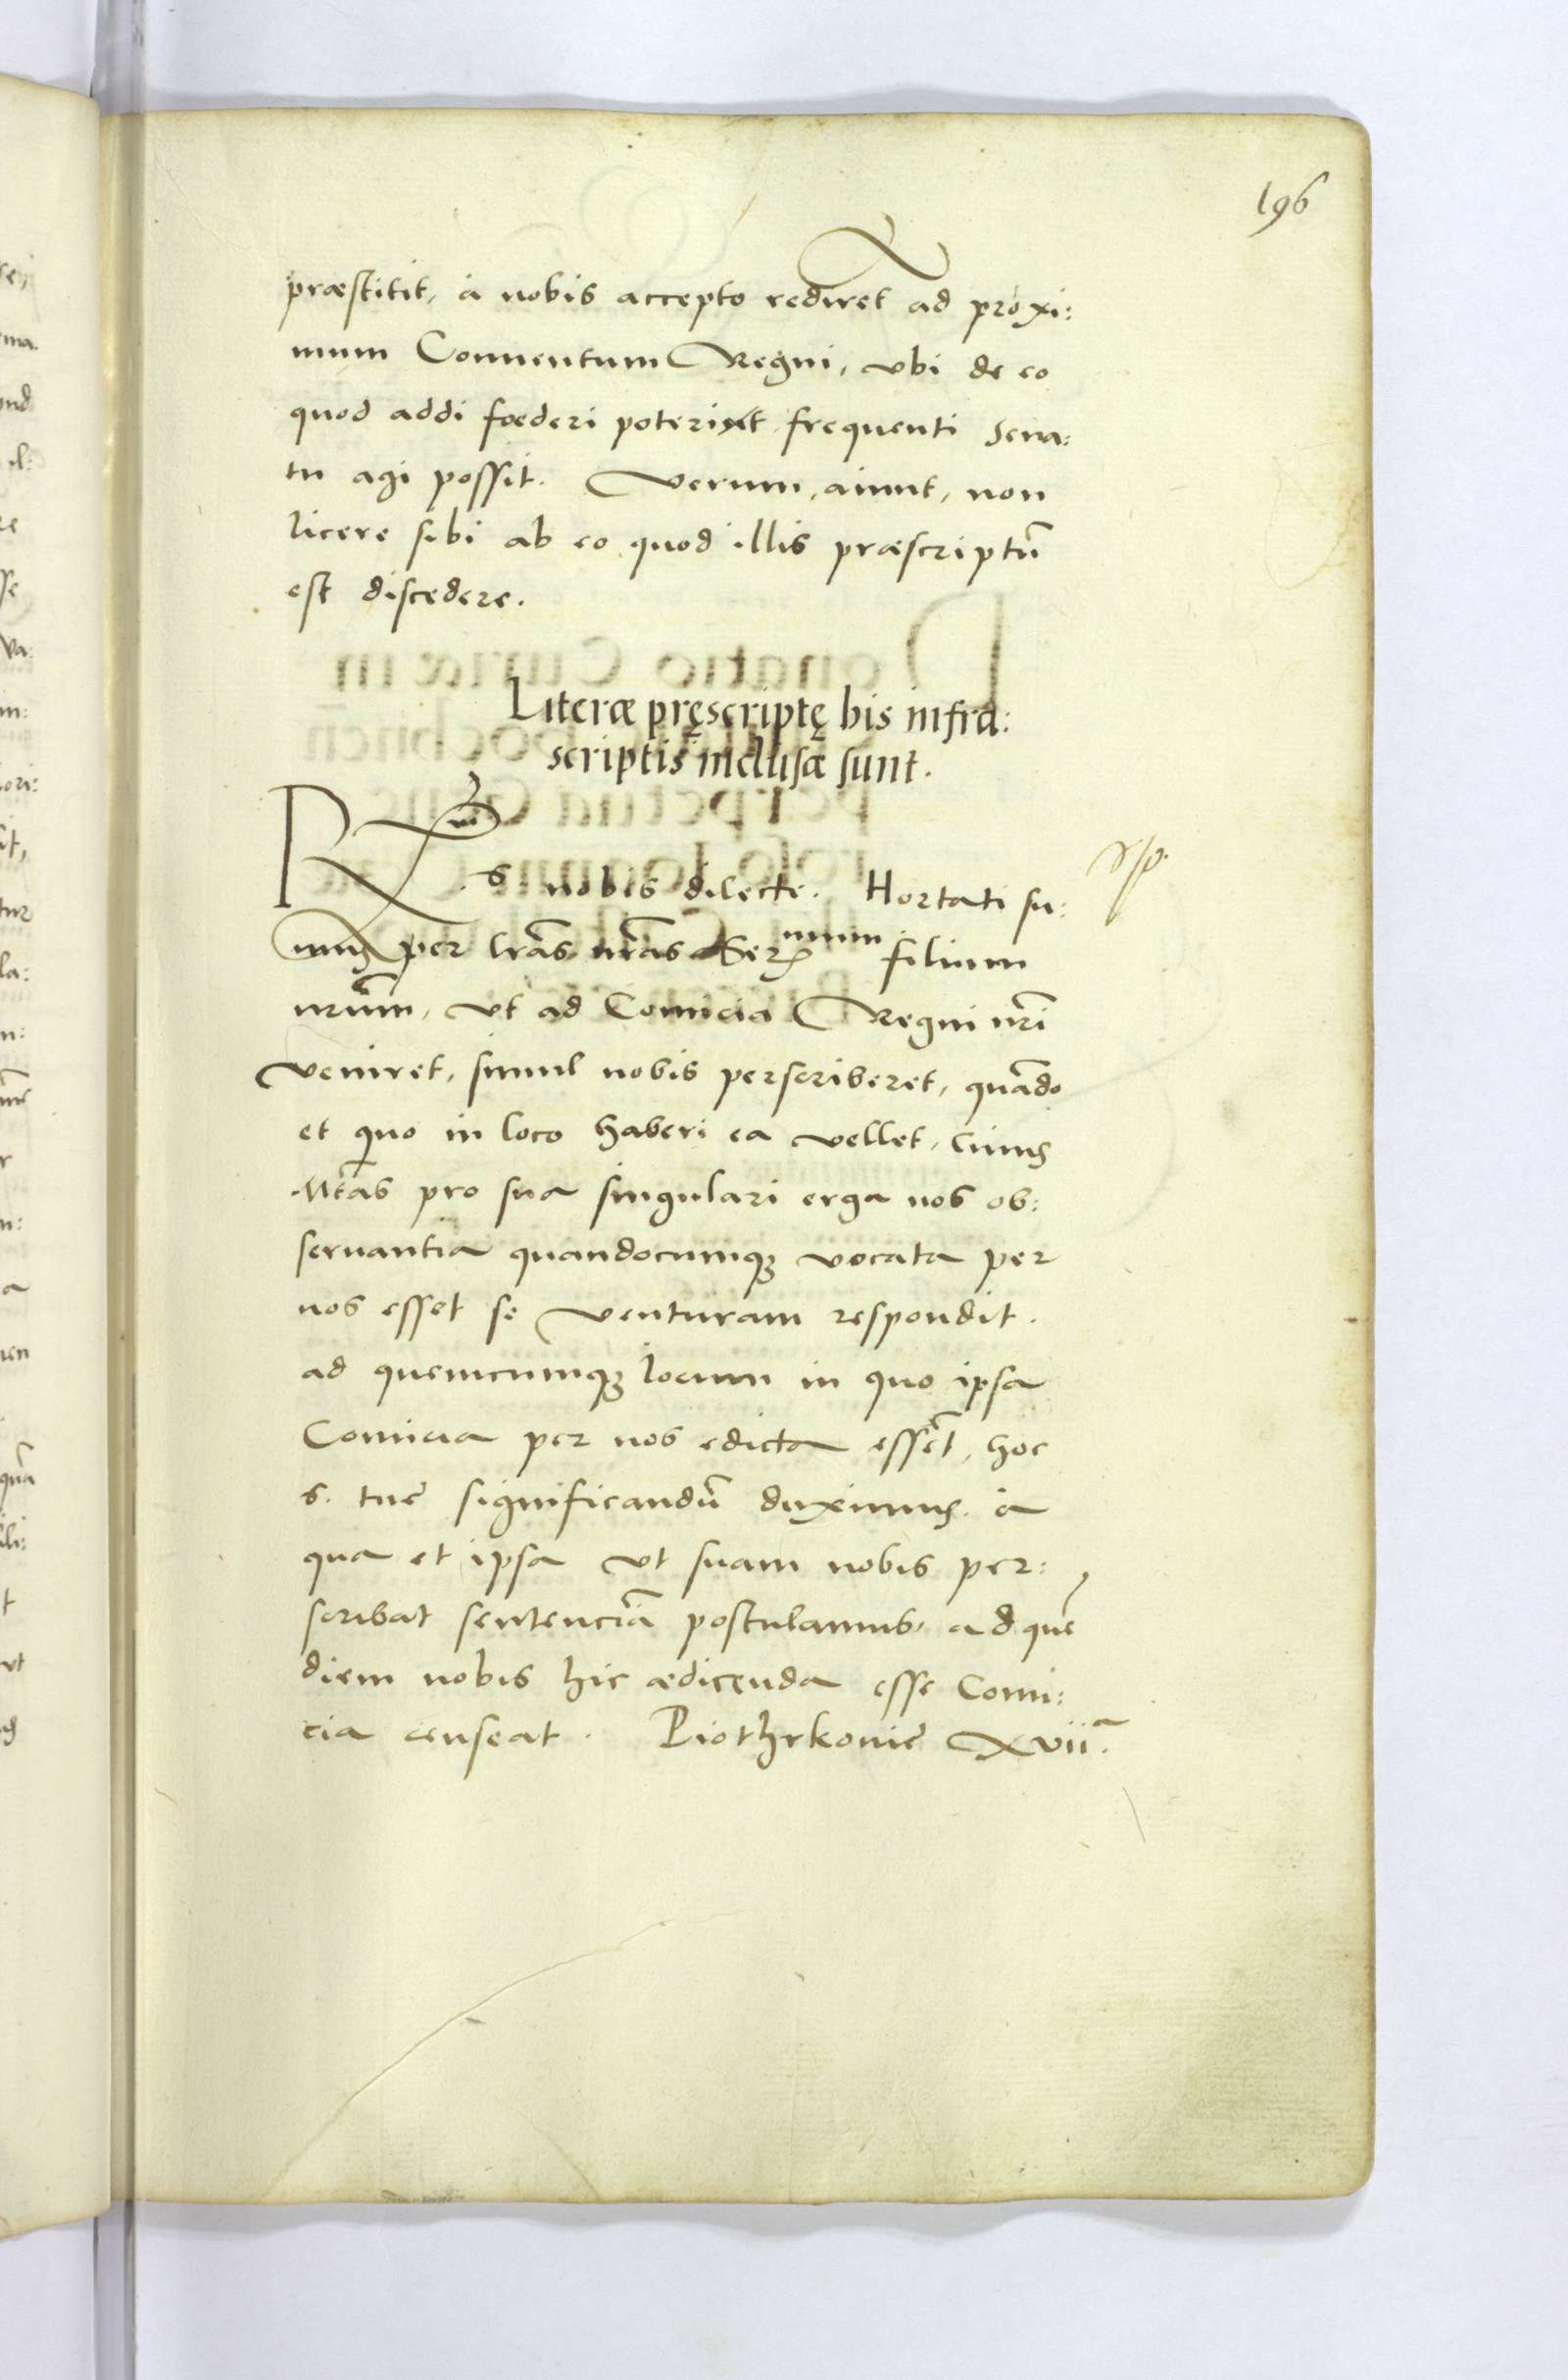 196
præstitit, à nobis accepto rediret ad proxi:
mum Conuentum Regni, vbi de eo
quod addi fœderi poterit frequenti Sena:
tu agi possit. Verum, aiunt, non
licere sibi ab eo quod illis præscriptũ
est discedere.
Literæ pręscriptę his infra:
scriptis inclusæ sunt.
R nobis dilecte. Hortati su:
mus per lr̃as nr̃as Ser nmum filium
nrũm, vt ad Comicia Regni nr̃i
veniret, simul nobis perscriberet, quãdo
et quo in loco haberi ea vellet, cuius
Mtãs pro sua singulari erga nos ob:
seruantia quandocumq; vocata per
nos esset se venturam respondit.
ad quemcumq; locum in quo ipsa
Comicia per nos edicta essẽt, hoc
s. tuę significandũ duximus. à
qua et ipsa vt suam nobis per:
scribat sentenciã postulamus, ad quẽ
diem nobis hic ædicenda esse Comi:
cia censeat. Piothrkouię XVIIª.